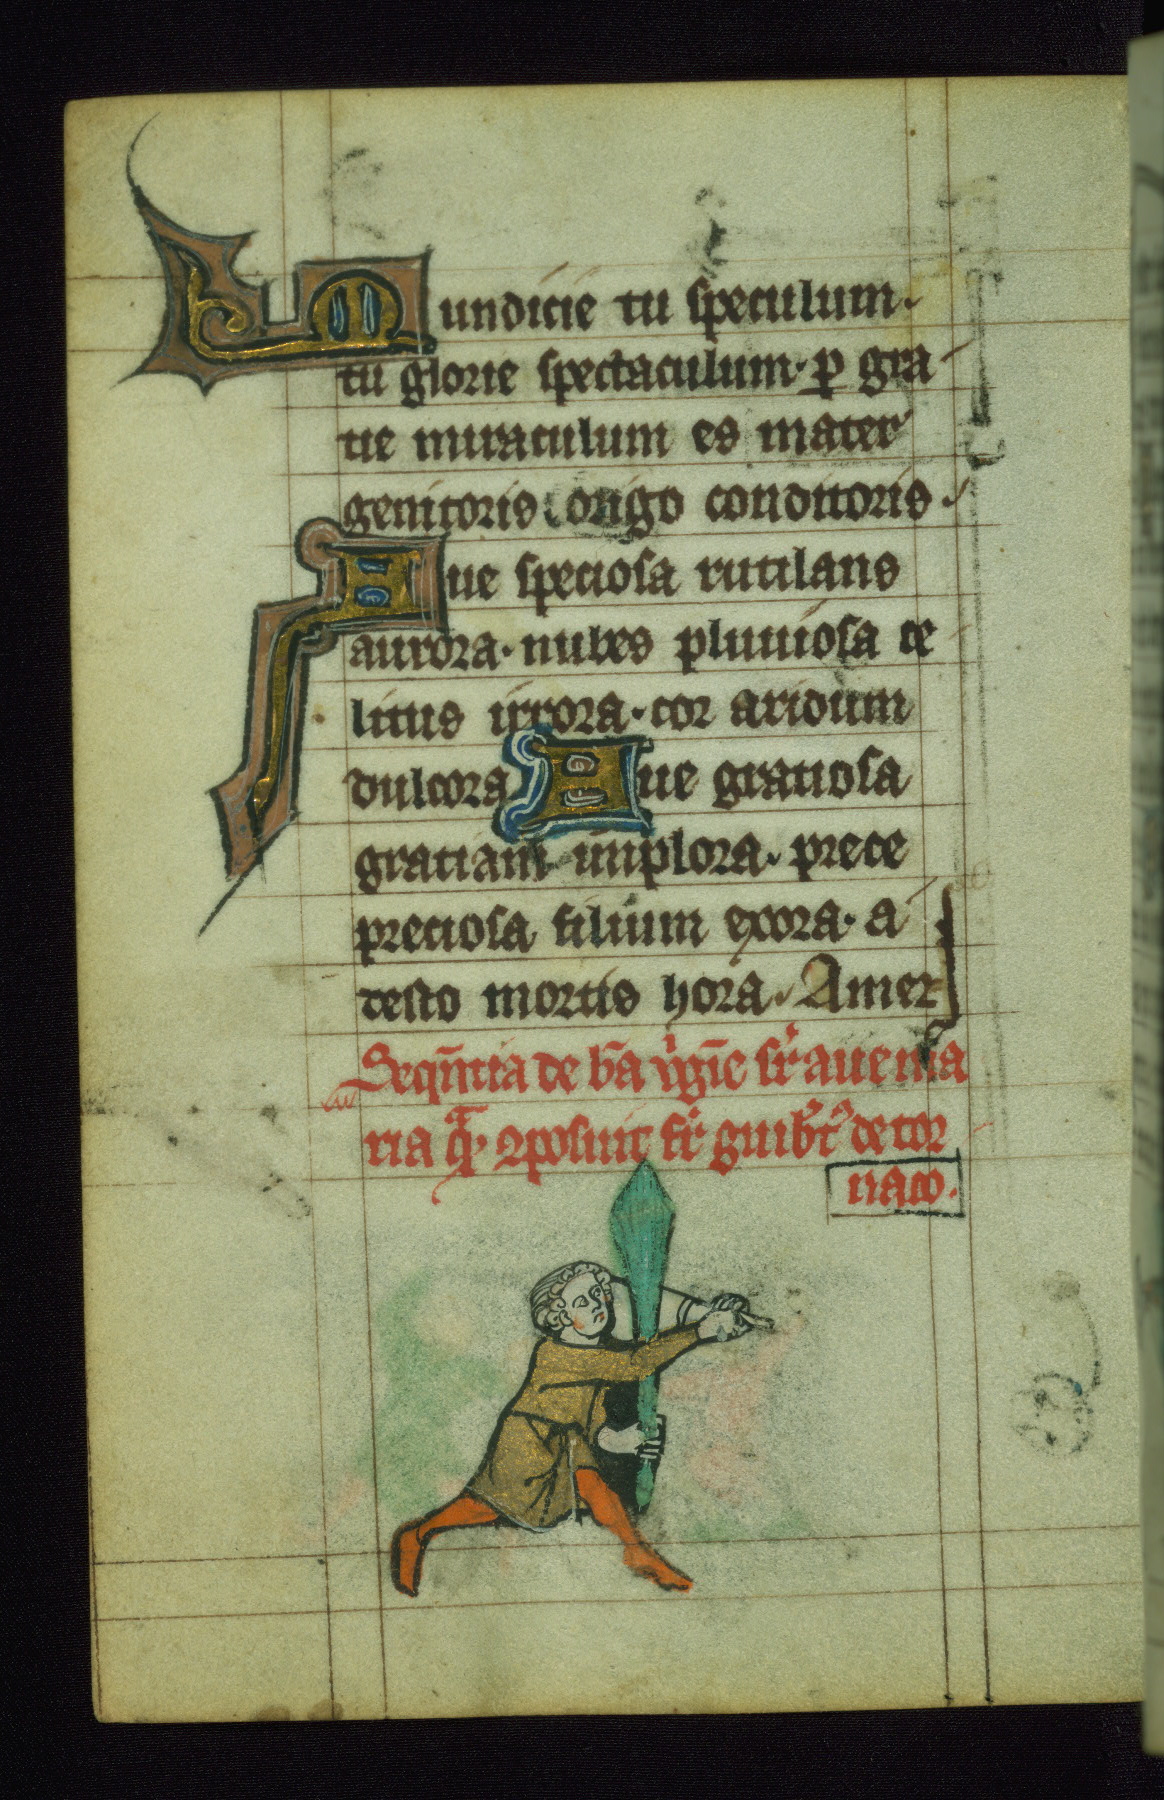 Mundicie tu speculum.
tu glorie spectaculum. p gra
tie miraculum es mater
genitoris origo conditoris.
Aue speciosa rutilans
aurora. nubes pluuiosa ce
litus irrora. cor aridum
dulcora Aue gratiosa
gratiam implora. prece
preciosa filium exora. a
testo mortis hora. Amen
Seqn̄tia de bā ṽgīe sr̃ aue ma
ria q̃ ꝯposuit fr̃ guib̃t̃ de tor
naco.